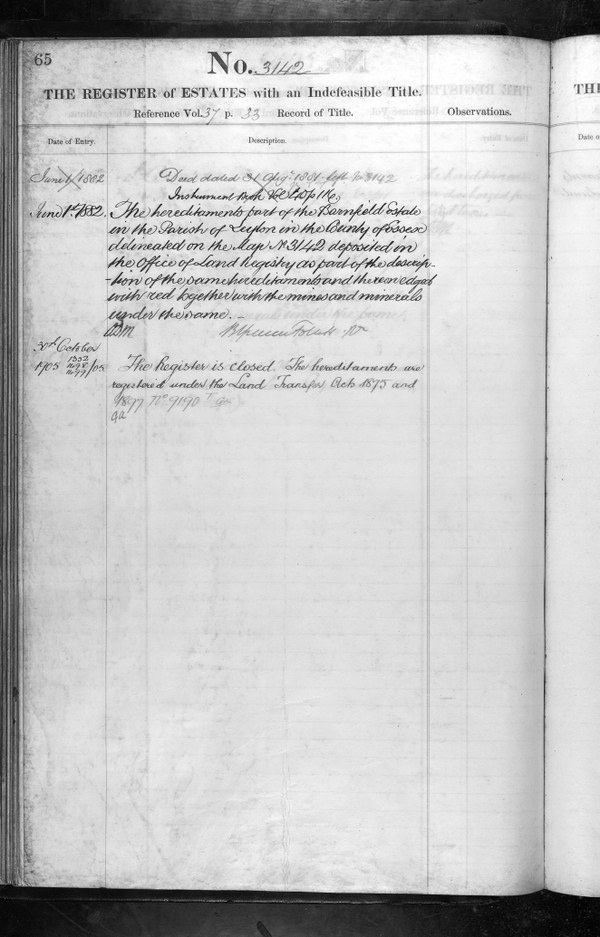 65
No. 3142
THE REGISTER of ESTATES with an Indefeasible Title.
Reference Vol. 37 p. 33 Record of Title. Observations.
Date of Entry. Description.
June 1 1882 Deed dated 31 1881 left in 3142
Instrument Book Vol p 116
June 1st 1882. The hereditaments part of the Barnfield Estate
in the Parish of Leyton in the County of Essex
delineated on the Map No 3142 deposited in
the Office of Land Registry as part of the descrip-
-tion of the same hereditaments and thereon edged
with red together with the mines and minerals
under the same.
30th October
1905 1352 /05 The Register is closed. The hereditaments are
registered under the Land Transfer Acts 1875 and
1897 No 9190
THE
Date o